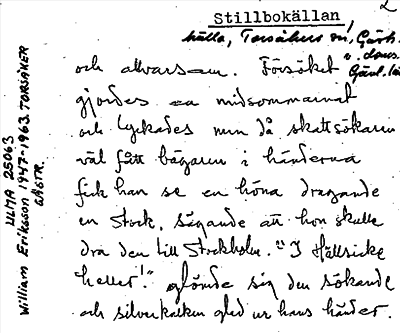 2
Stillbokällan,
källa, Torsåkers sn, Gästr.
och allvarsam. Försöket
gjordes en midsommarnatt
och lyckades men då skattsökaren
väl fått bägaren i händerna
fick han se en höna dragande
en stock, sägande att hon skulle
dra den till Stockholm. "I Hällsicke
heller!" glömde sig den sökande
och silverkalken gled ur hans händer.
ULMA 25063
William Eriksson 1947-1963. TORSÅKER
GÄSTR.